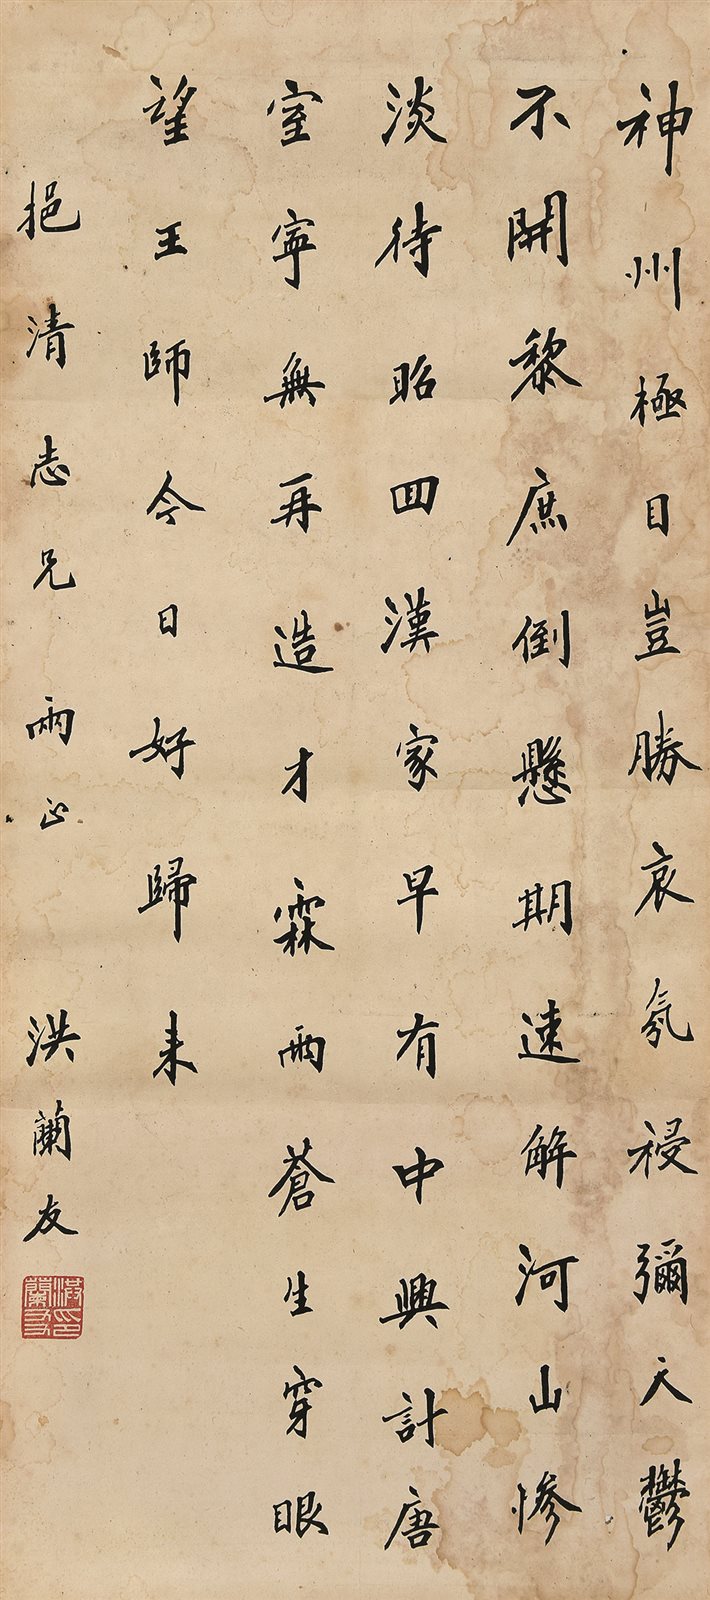 神州極目豈勝哀氛祲彌天鬱
不開黎庶倒懸期速解河山慘
淡待昭回漢家早有中興計唐
室寧無再造才霖雨蒼生穿眼
望王師今日好歸来
挹清志兄兩正
洪蘭友
洪蘭友印